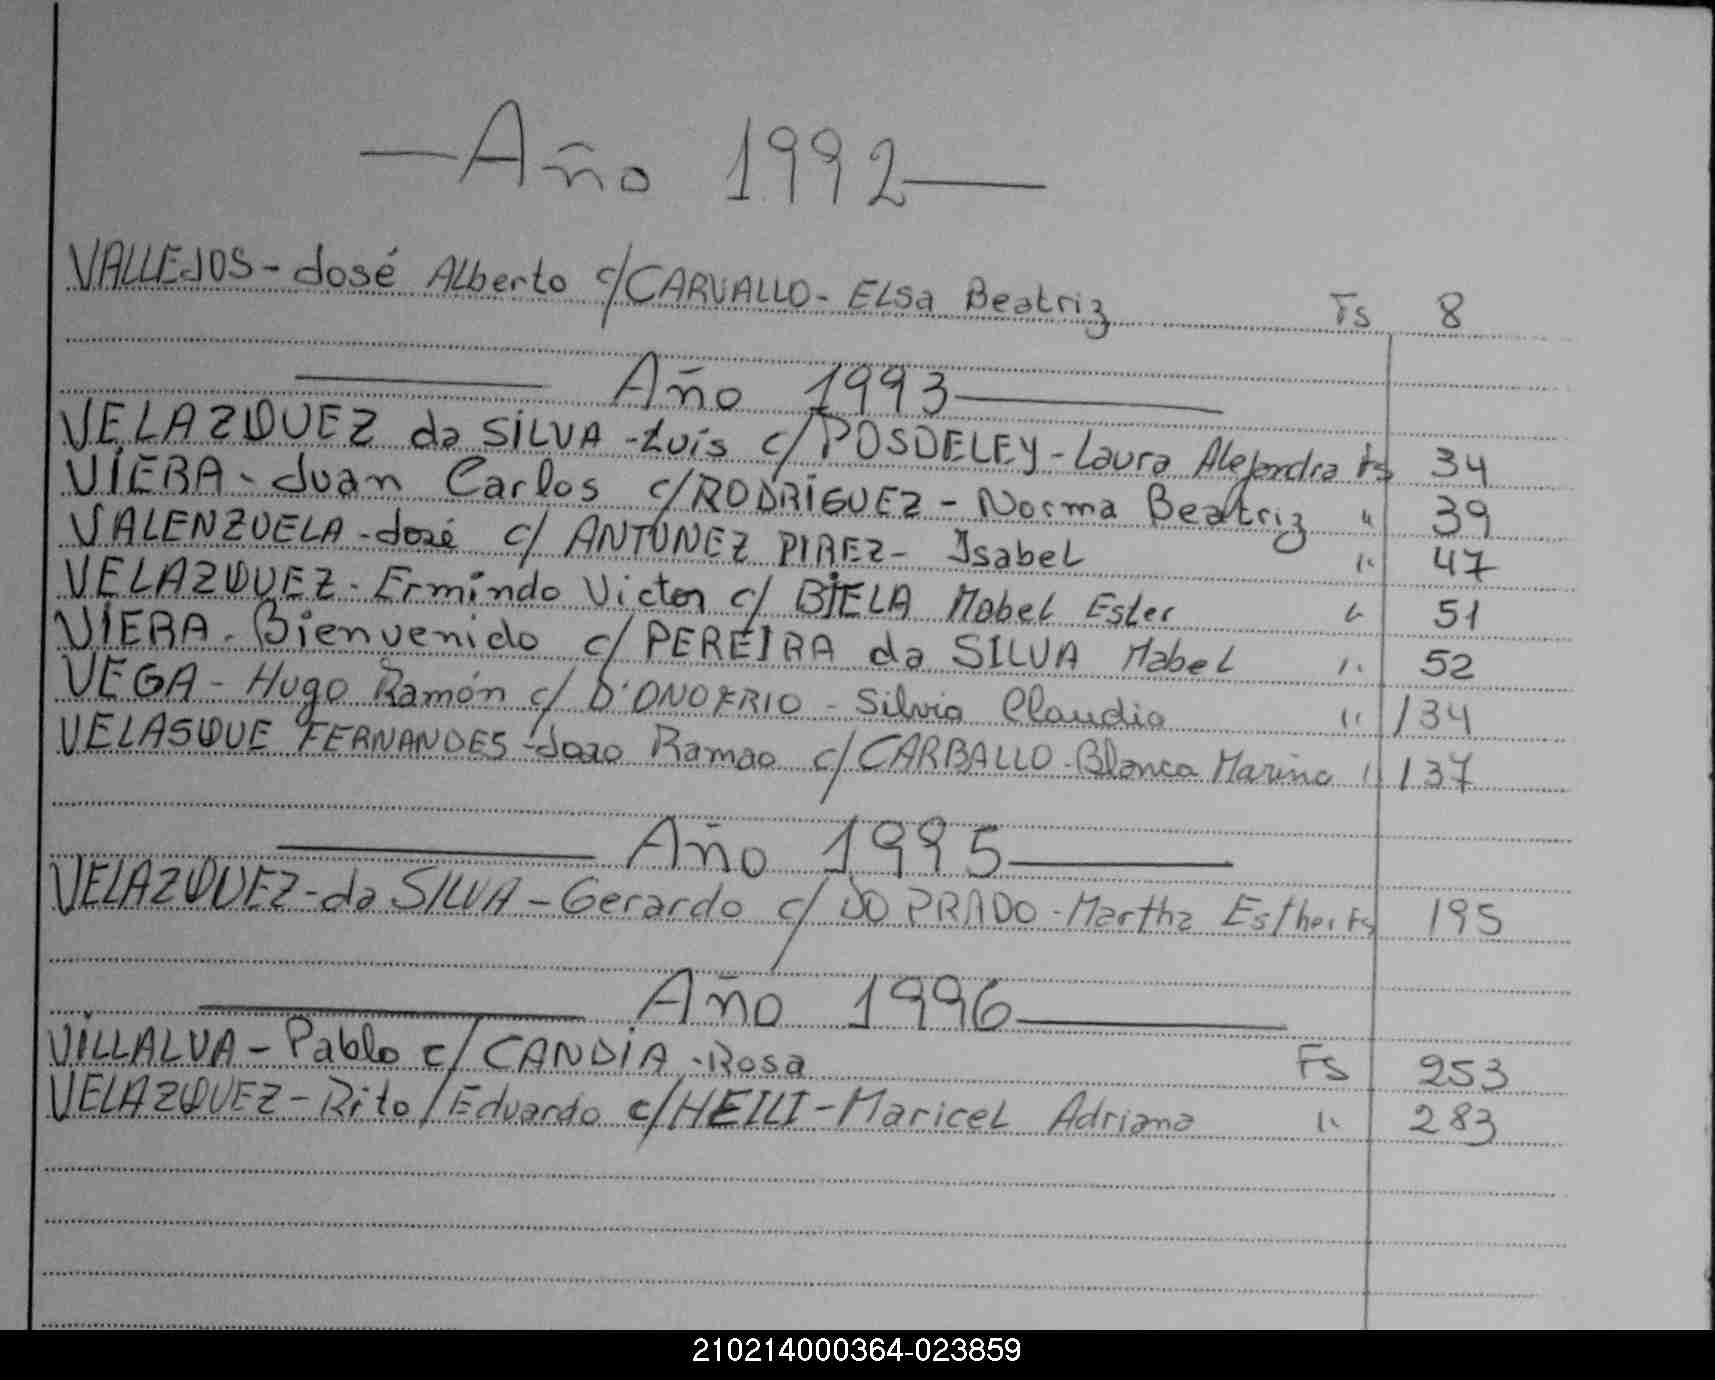 — Año 1992 —
VALLEJOS - José Alberto c/ CARVALLO - ELSa Beatriz Fs 8
— Año 1993 —
VELAZQUEZ da SILVA - Luis c/ POSDELEY - Laura Alejandra Fs 34
VIERA - Juan Carlos c/ RODRIGUEZ - Norma Beatriz " 39
VALENZUELA - José c/ ANTUNEZ PIREZ - Isabel " 47
VELAZQUEZ - Ermindo Victor c/ BIELA Mabel Ester " 51
VIERA - Bienvenido c/ PEREIRA da SILVA Mabel " 52
VEGA - Hugo Ramón c/ D'ONOFRIO - Silvia Claudia " 134
VELASQUE FERNANDES - Joao Ramao c/ CARBALLO - Blanca Marina " 137
— Año 1995 —
VELAZQUEZ - da SILVA - Gerardo c/ DO PRADO - Martha Esther Fs 195
— Año 1996 —
VILLALVA - Pablo c/ CANDIA - Rosa Fs 253
VELAZQUEZ - Rito / Eduardo c/ - Maricel Adriana " 283
210214000364-023859